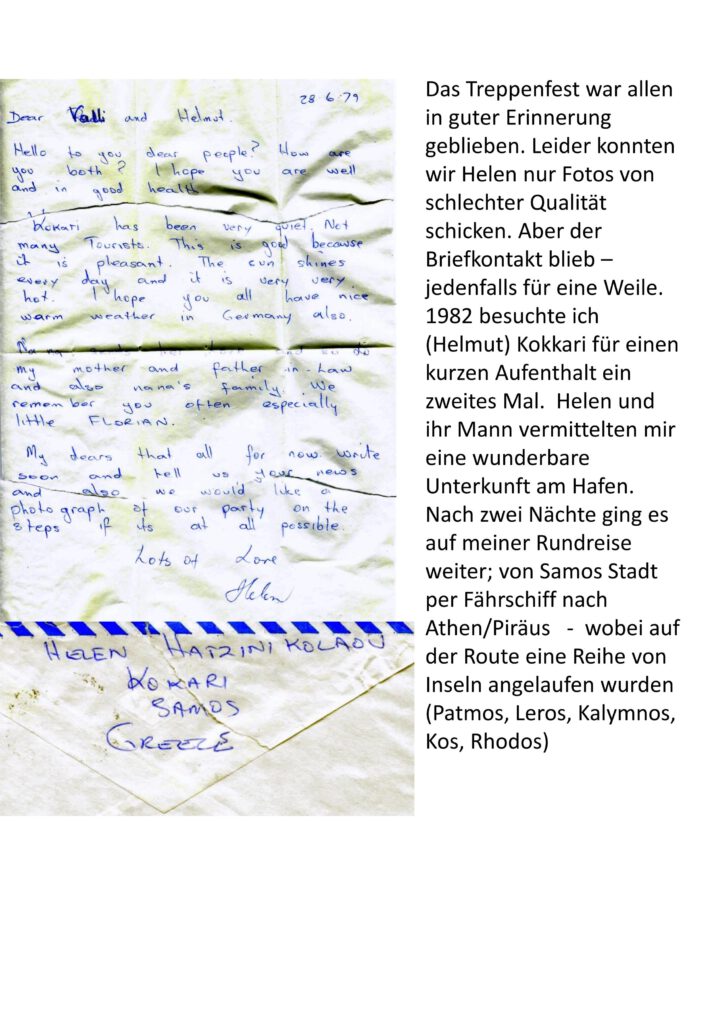 28·6·79
Dear Valli and Helmut.
Hello to you dear people? How are
you both? I hope you are well
and in good health
Kokari has been very quiet. Not
many Tourists. This is good because
it is pleasant. The sun shines
every day and it is very very
hot. I hope you all have nice
warm weather in Germany also.
her and so do
my mother and father in-law
and also nana's family. We
remember you often especially
little FLORIAN.
My dears that all for now write
soon and tell us your news
and also we would like a
photograph of our party on the
steps if its at all possible.
Lots of Love
Helen
HELEN HATZINIKOLAOU
KOKARI
SAMOS
GREECE
Das Treppenfest war allen
in guter Erinnerung
geblieben. Leider konnten
wir Helen nur Fotos von
schlechter Qualität
schicken. Aber der
Briefkontakt blieb –
jedenfalls für eine Weile.
1982 besuchte ich
(Helmut) Kokkari für einen
kurzen Aufenthalt ein
zweites Mal. Helen und
ihr Mann vermittelten mir
eine wunderbare
Unterkunft am Hafen.
Nach zwei Nächte ging es
auf meiner Rundreise
weiter; von Samos Stadt
per Fährschiff nach
Athen/Piräus - wobei auf
der Route eine Reihe von
Inseln angelaufen wurden
(Patmos, Leros, Kalymnos,
Kos, Rhodos)